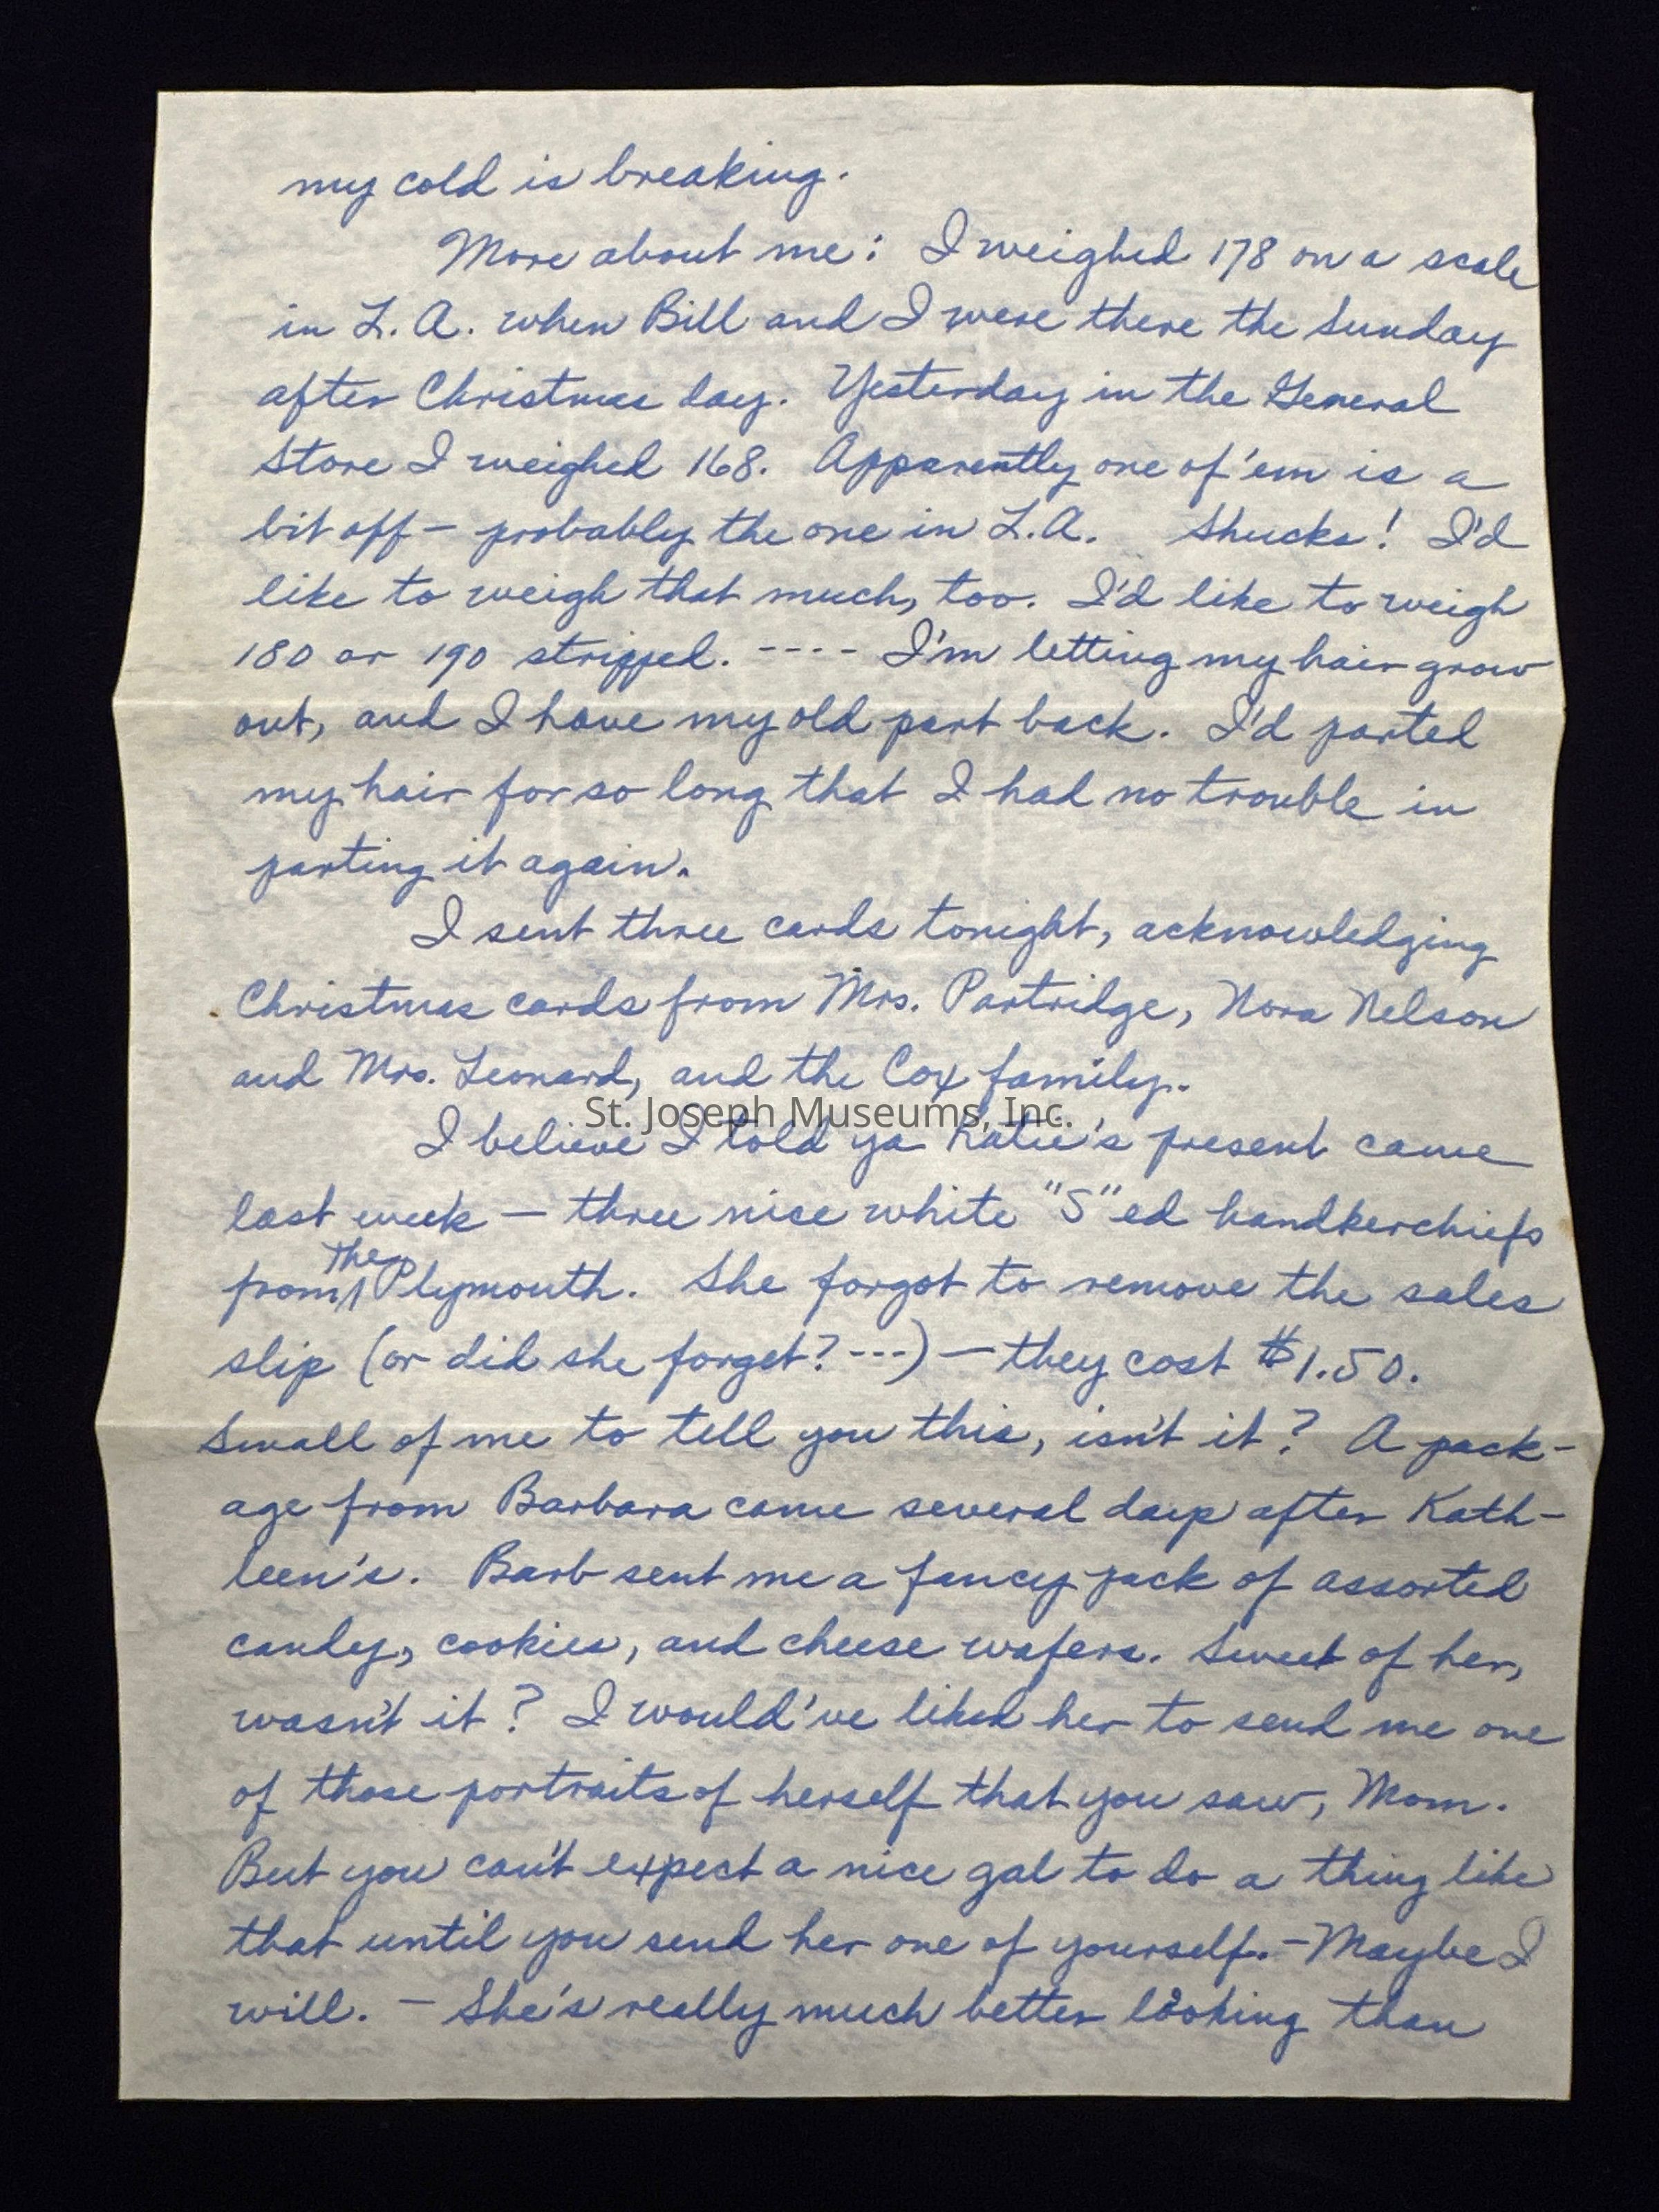 my cold is breaking.
More about me: I weighed 178 on a scale
in L.A. when Bill and I were there the Sunday
after Christmas day. Yesterday in the General
Store I weighed 168. Apparently one of 'em is a
bit off — probably the one in L.A. Shucks! I'd
like to weigh that much, too. I'd like to weigh
180 or 190 stripped. ---- I'm letting my hair grow
out, and I have my old part back. I'd parted
my hair for so long that I had no trouble in
parting it again.
I sent three cards tonight, acknowledging
Christmas cards from Mrs. Partridge, Nora Nelson
and Mrs. Leonard, and the Cox family.
St. Joseph Museums, Inc.
I believe I told ya Katie's present came
last week — three nice white "S"ed handkerchiefs
from The Plymouth. She forgot to remove the sales
slip (or did she forget? ---) — they cost $1.50.
Small of me to tell you this, isn't it? A pack-
age from Barbara came several days after Kath-
leen's. Barb sent me a fancy pack of assorted
candy, cookies, and cheese wafers. Sweet of her,
wasn't it? I would've liked her to send me one
of those portraits of herself that you saw, Mom.
But you can't expect a nice gal to do a thing like
that until you send her one of yourself. — Maybe I
will. — She's really much better looking than